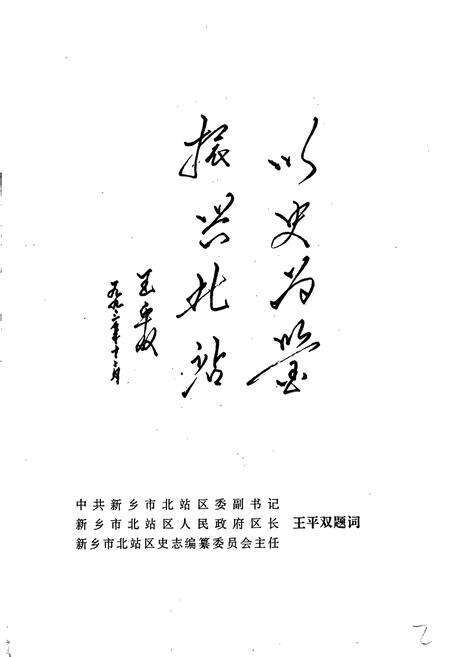 以史为鉴
振兴北站
王平双
一九九二年十二月
中共新乡市北站区委副书记
新乡市北站区人民政府区长
王平双题词
新乡市北站区史志编纂委员会主任
2